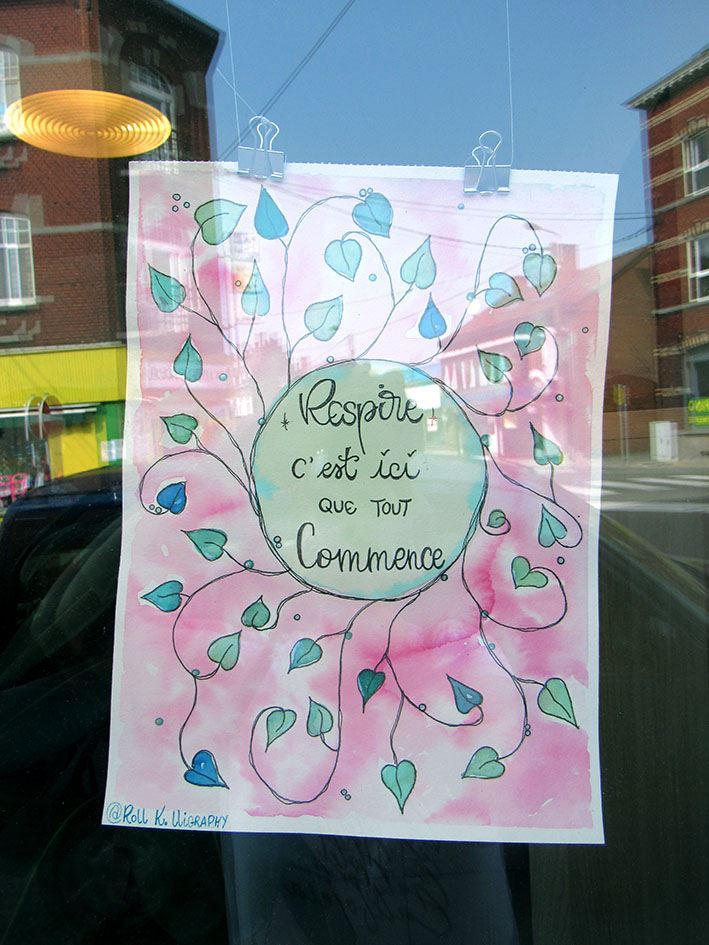 Respire
c'est ici
QUE TOUT
Commence
@ROLL K. LIGRAPHY